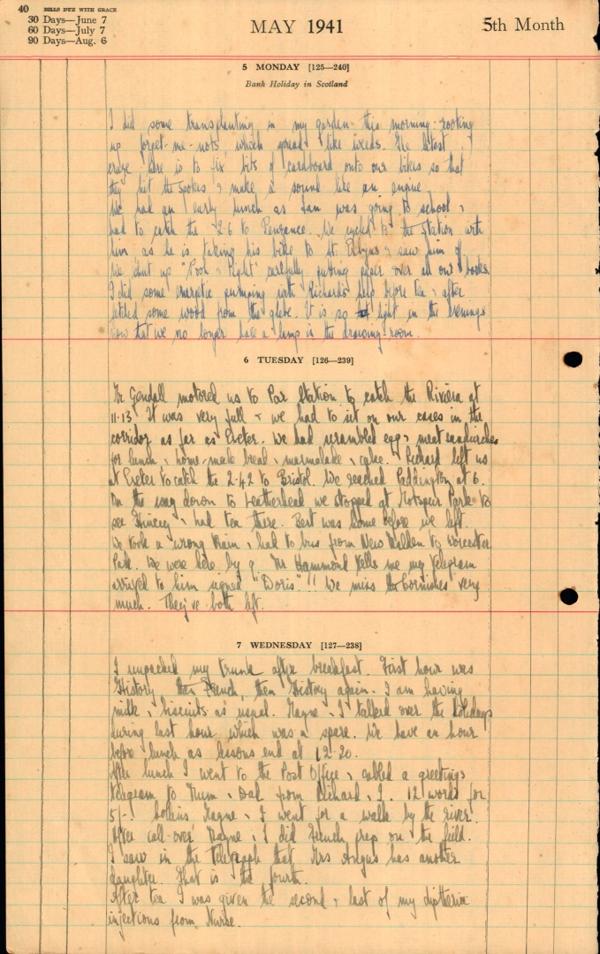 40 BILLS DUE WITH GRACE
30 Days—June 7
60 Days—July 7
90 Days—Aug. 6
MAY 1941
5th Month
5 MONDAY [125—240]
Bank Holiday in Scotland
I did some transplanting in my garden this morning - rooting
up forget-me-nots, which spread like weeds. The latest
craze here is to fix bits of cardboard onto our bikes so that
they hit the spokes & make a sound like an engine.
We had an early lunch as Ian was going to school &
had to catch the 2.6 to Penzance. We cycled to the station with
him as he is taking his bike to St. & saw him off.
We shut up carefully putting paper over all our books.
I did some energetic pumping with Richard's help before tea & after
some wood from the glebe. It is so light in the evenings
now that we no longer have a lamp in the drawing-room.
6 TUESDAY [126—239]
Mr Gendall motored us to Par Station to catch the Riviera at
11.13. It was very full & we had to sit on our cases in the
corridor as far as Exeter. We had scrambled egg & meat sandwiches
for lunch & home-made bread & marmalade & cake. Richard left us
at Exeter to catch the 2.42 to Bristol. We reached Paddington at 6.
On the way down to Leatherhead we stopped at Motspur Park to
see & had tea there. Bert was home before we left.
We took a wrong train & had to bus from New Malden to Worcester
Park. We were here by 9. Mr Hammond tells me my telegram
arrived to him signed "Doris"!! We miss the Cornishes very
much. They've both left.
7 WEDNESDAY [127—238]
I unpacked my trunk after breakfast. First hour was
History then French, then History again. I am having
milk & biscuits as usual. Rayne & I talked over the holidays
during last hour which was a spare. We have an hour
before lunch as lessons end at 12.20.
After lunch I went to the Post Office & cabled a greetings
telegram to Mum & Dad from Richard & I. 12 words for
5/-! Rayne & I went for a walk by the river.
After call-over Rayne & I did French prep on the field.
I saw in the Telegraph that Mrs Angus has another
daughter. That is the fourth.
After tea I was given the second & last of my diptheria
injections from Nurse.